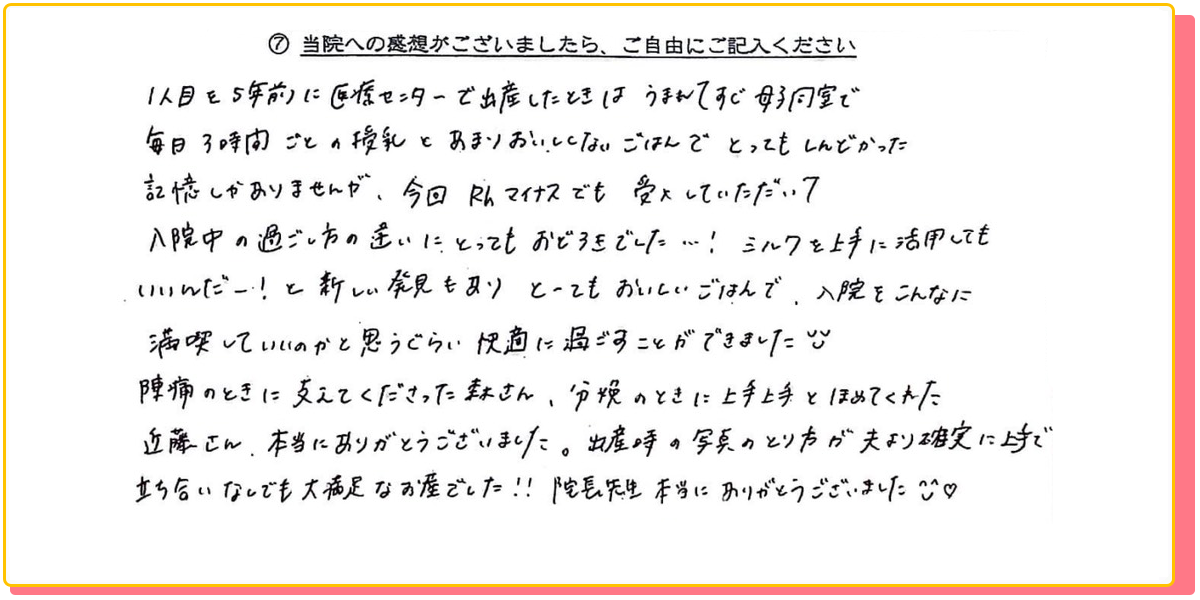 ⑦ 当院への感想がございましたら、ご自由にご記入ください
1人目を5年前に医療センターで出産したときは うまれてすぐ母子同室で
毎日3時間ごとの授乳とあまりおいしくないごはんで とってもしんどかった
記憶しかありませんが、今回 Rhマイナスでも 受入していただいて
入院中の過ごし方の違いにとってもおどろきでした…! ミルクを上手に活用しても
いいんだー!と新しい発見もあり とーってもおいしいごはんで、入院をこんなに
満喫していいのかと思うぐらい快適に過ごすことができました
陣痛のときに支えてくださった森さん、分娩のときに上手上手とほめてくれた
近藤さん、本当にありがとうございました。出産時の写真のとり方が夫より確実に上手で
立ち合いなしでも大満足なお産でした!! 院長先生本当にありがとうございました♡